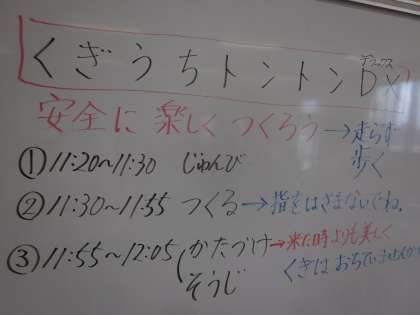 くぎうちトントンDX
デラックス
安全に楽しくつくろう→走らず
歩く
①11:20〜11:30 じゅんび
②11:30〜11:55 つくる→指をはさまないでね。
③11:55〜12:05 かたづけ→来た時よりも美しく
そうじ
くぎはおちていませんか